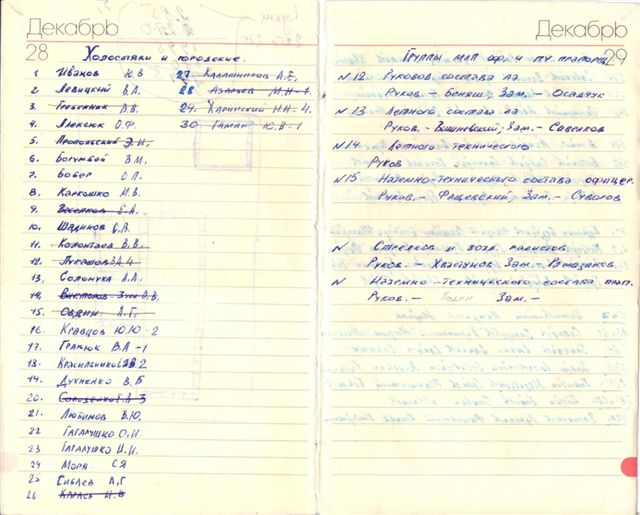 Декабрь
28
Холостяки и городские.
1 Иванов Ю.В
2. Левицкий В.А.
3. Гребенник В.В.
4. Алексюк О.Ф.
5. Э.И.
6. Богумбай В.М.
7. Бобер О.П.
8. Каркошко М.В.
9. Веселков Е.А.
10. Шадинов С.А.
11. Колонтаев В.В.
12. Лукашов В.А. 4
13. Соломуха А.А.
14. Викторов В.В.
15. Овдин А.Г.
16. Кравцов Ю.Ю - 2
17. Гранюк В.А - 1
18. Красильников 2
19. Духненко В.Б
20. В 3
21. Любимов В.Ю.
22 Гагалушко О.И.
23 Гагалушко И.И.
24 Моря С.Я
25 Сиваев А.Г
26 Карась И.В
27. Калашников А.Е,
28 Азарьев М.Н - 1.
29. Харинский Н.Н - 4.
30 Гаман Ю.В - 1
Декабрь
29
Группы МПП оф. и пр.
N 12 Руковод. состава АЭ
Руков. - Беняш; Зам. - Осадчук
N 13 Летного состава АЭ
Руков. - Вишневский; Зам. - Савенков
N 14 Летного технического
Руков.
N 15 Наземно-технического состава офицер.
Руков. - Фащевский Зам. - Суворов
N Стрелков и возд. радистов
Руков. - Хвастунов Зам. Рамазаков.
N Наземно-технического состава прап.
Руков. - Зам. -